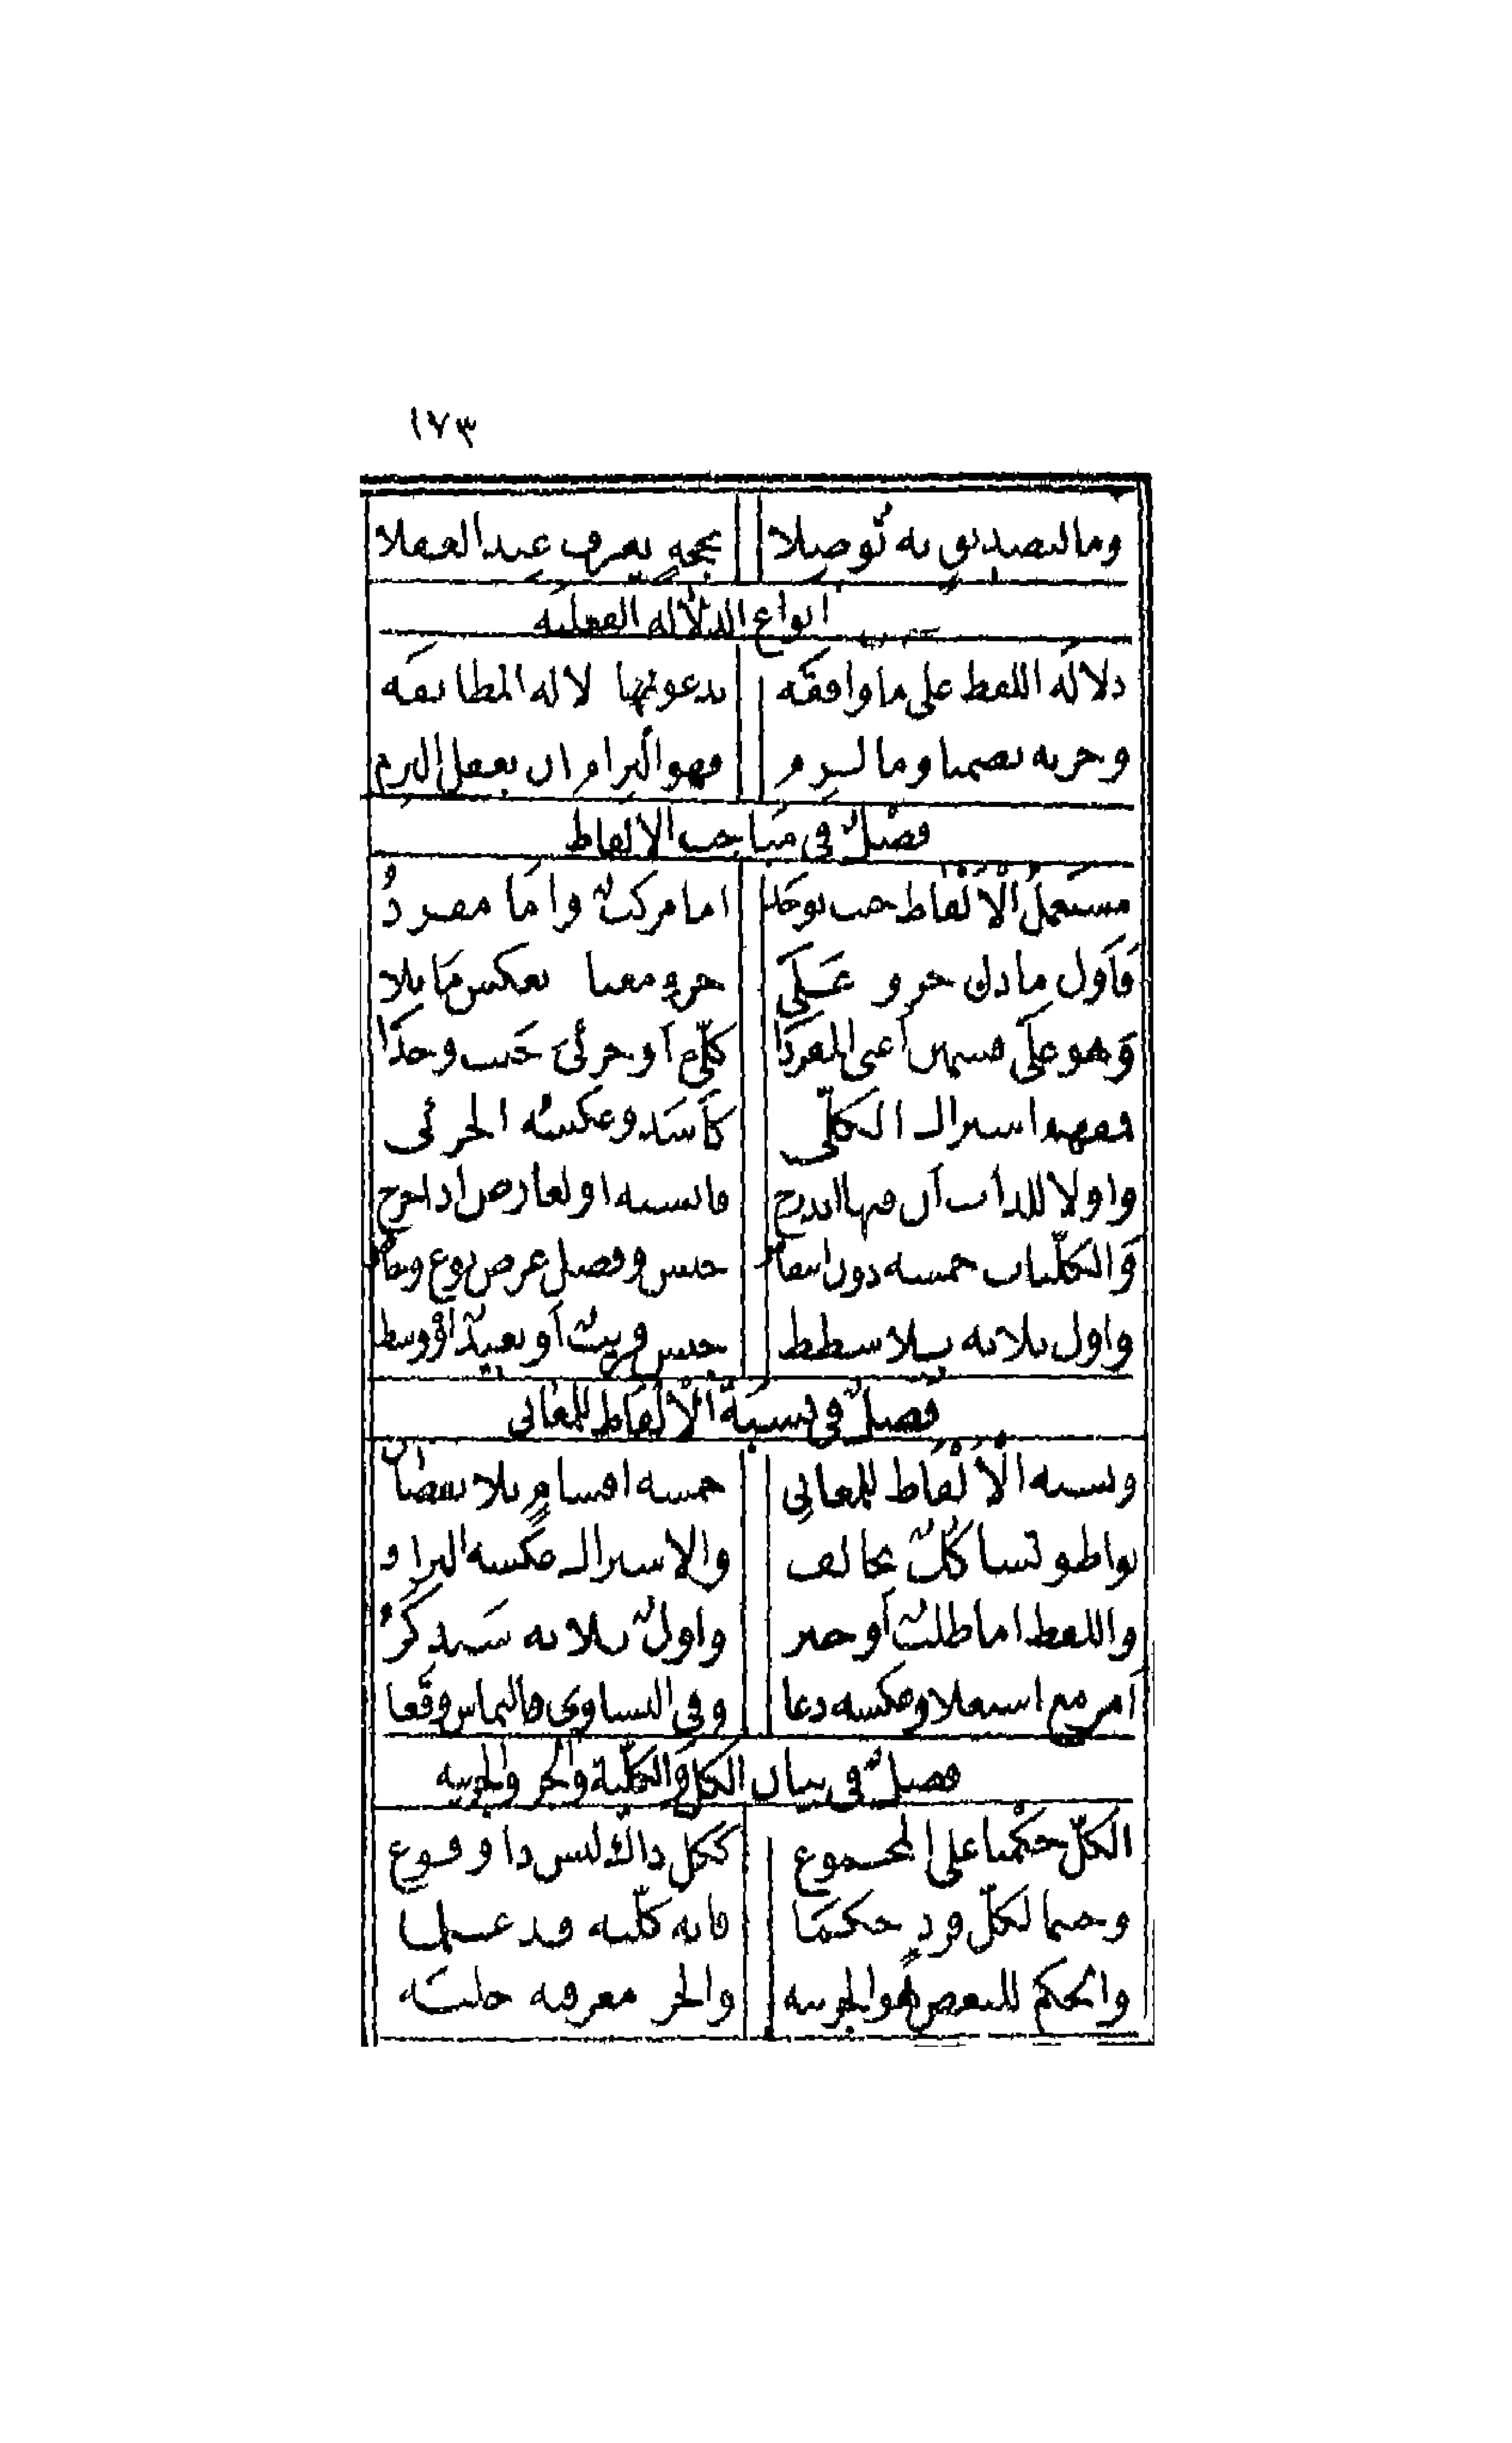 ١٧٣
وما لتصديق به تُوصلا بحجة يعرف عند العقلا
انواع الدلالة اللفظية
دلالة اللفظ على ما وافقه يدعونها دلالة المطابقه
وجزيه تضمنا وما لزم فهو التزام ان بعقل التزم
فصلٌ في مباحث الالفاظ
مستعمل الْألْفاظ حيث يوجد اما مركبٌ واما مفردُ
فأول ما دل جزوه على جزء معنا بعكس ما تلا
وهو على قسمين أعني المفردا كلّي أو جزئي حيث وجدا
فمفهم اشتراك الكلّي كأسد وعكسه الجزئي
واولا للذات ان فيها اندرج فانسبه او لعارض اذا خرج
والكلّيات خمسة دون انتقاص جنس وفصل عرض نوع وخاص
واول ثلاثة بلا شطط جنس قريبٌ أو بعيدٌ أو وسط
فصلٌ في نسبة الْألفاظ للمعاني
ونسبة الْألْفَاظ للمعاني خمسة اقسام بلا نقصان
تواطو تشاككٌ تخالف والاشتراك عكسه الترادف
واللفظ اما طلبٌ أو خبر واولٌ ثلاثة ستذكرُ
أمر مع استعلا وعكسه دعا وفي التساوي فالتماس وقعا
فصلٌ في بيان الكل والكلّية والجز والجزية
الكلّ حكمنا على المجموع ككل ذاك ليس ذا وقوع
وحيثما لكلّ فردٍ حكما فانه كلّية قد علما
والحكم للبعض هو الجزيه والجز معرفته جليه